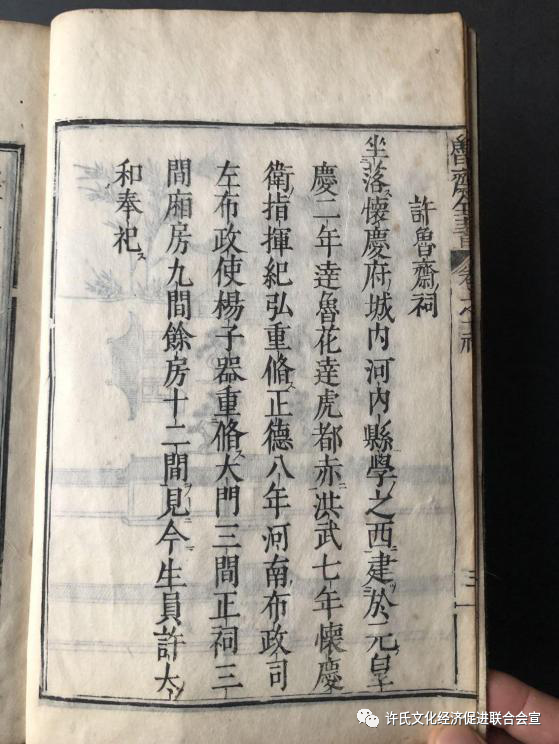 許魯齋祠
坐落懷慶府城内河内縣學之西建於元皇
慶二年達魯花達虎都赤洪武七年懷慶
衛指揮紀弘重脩正德八年河南布政司
左布政使楊子器重脩大門三間正祠三
間廂房九間餘房十二間見今生員許大
和奉祀
魯齋全書
卷之
许氏文化经济促进联合会宣